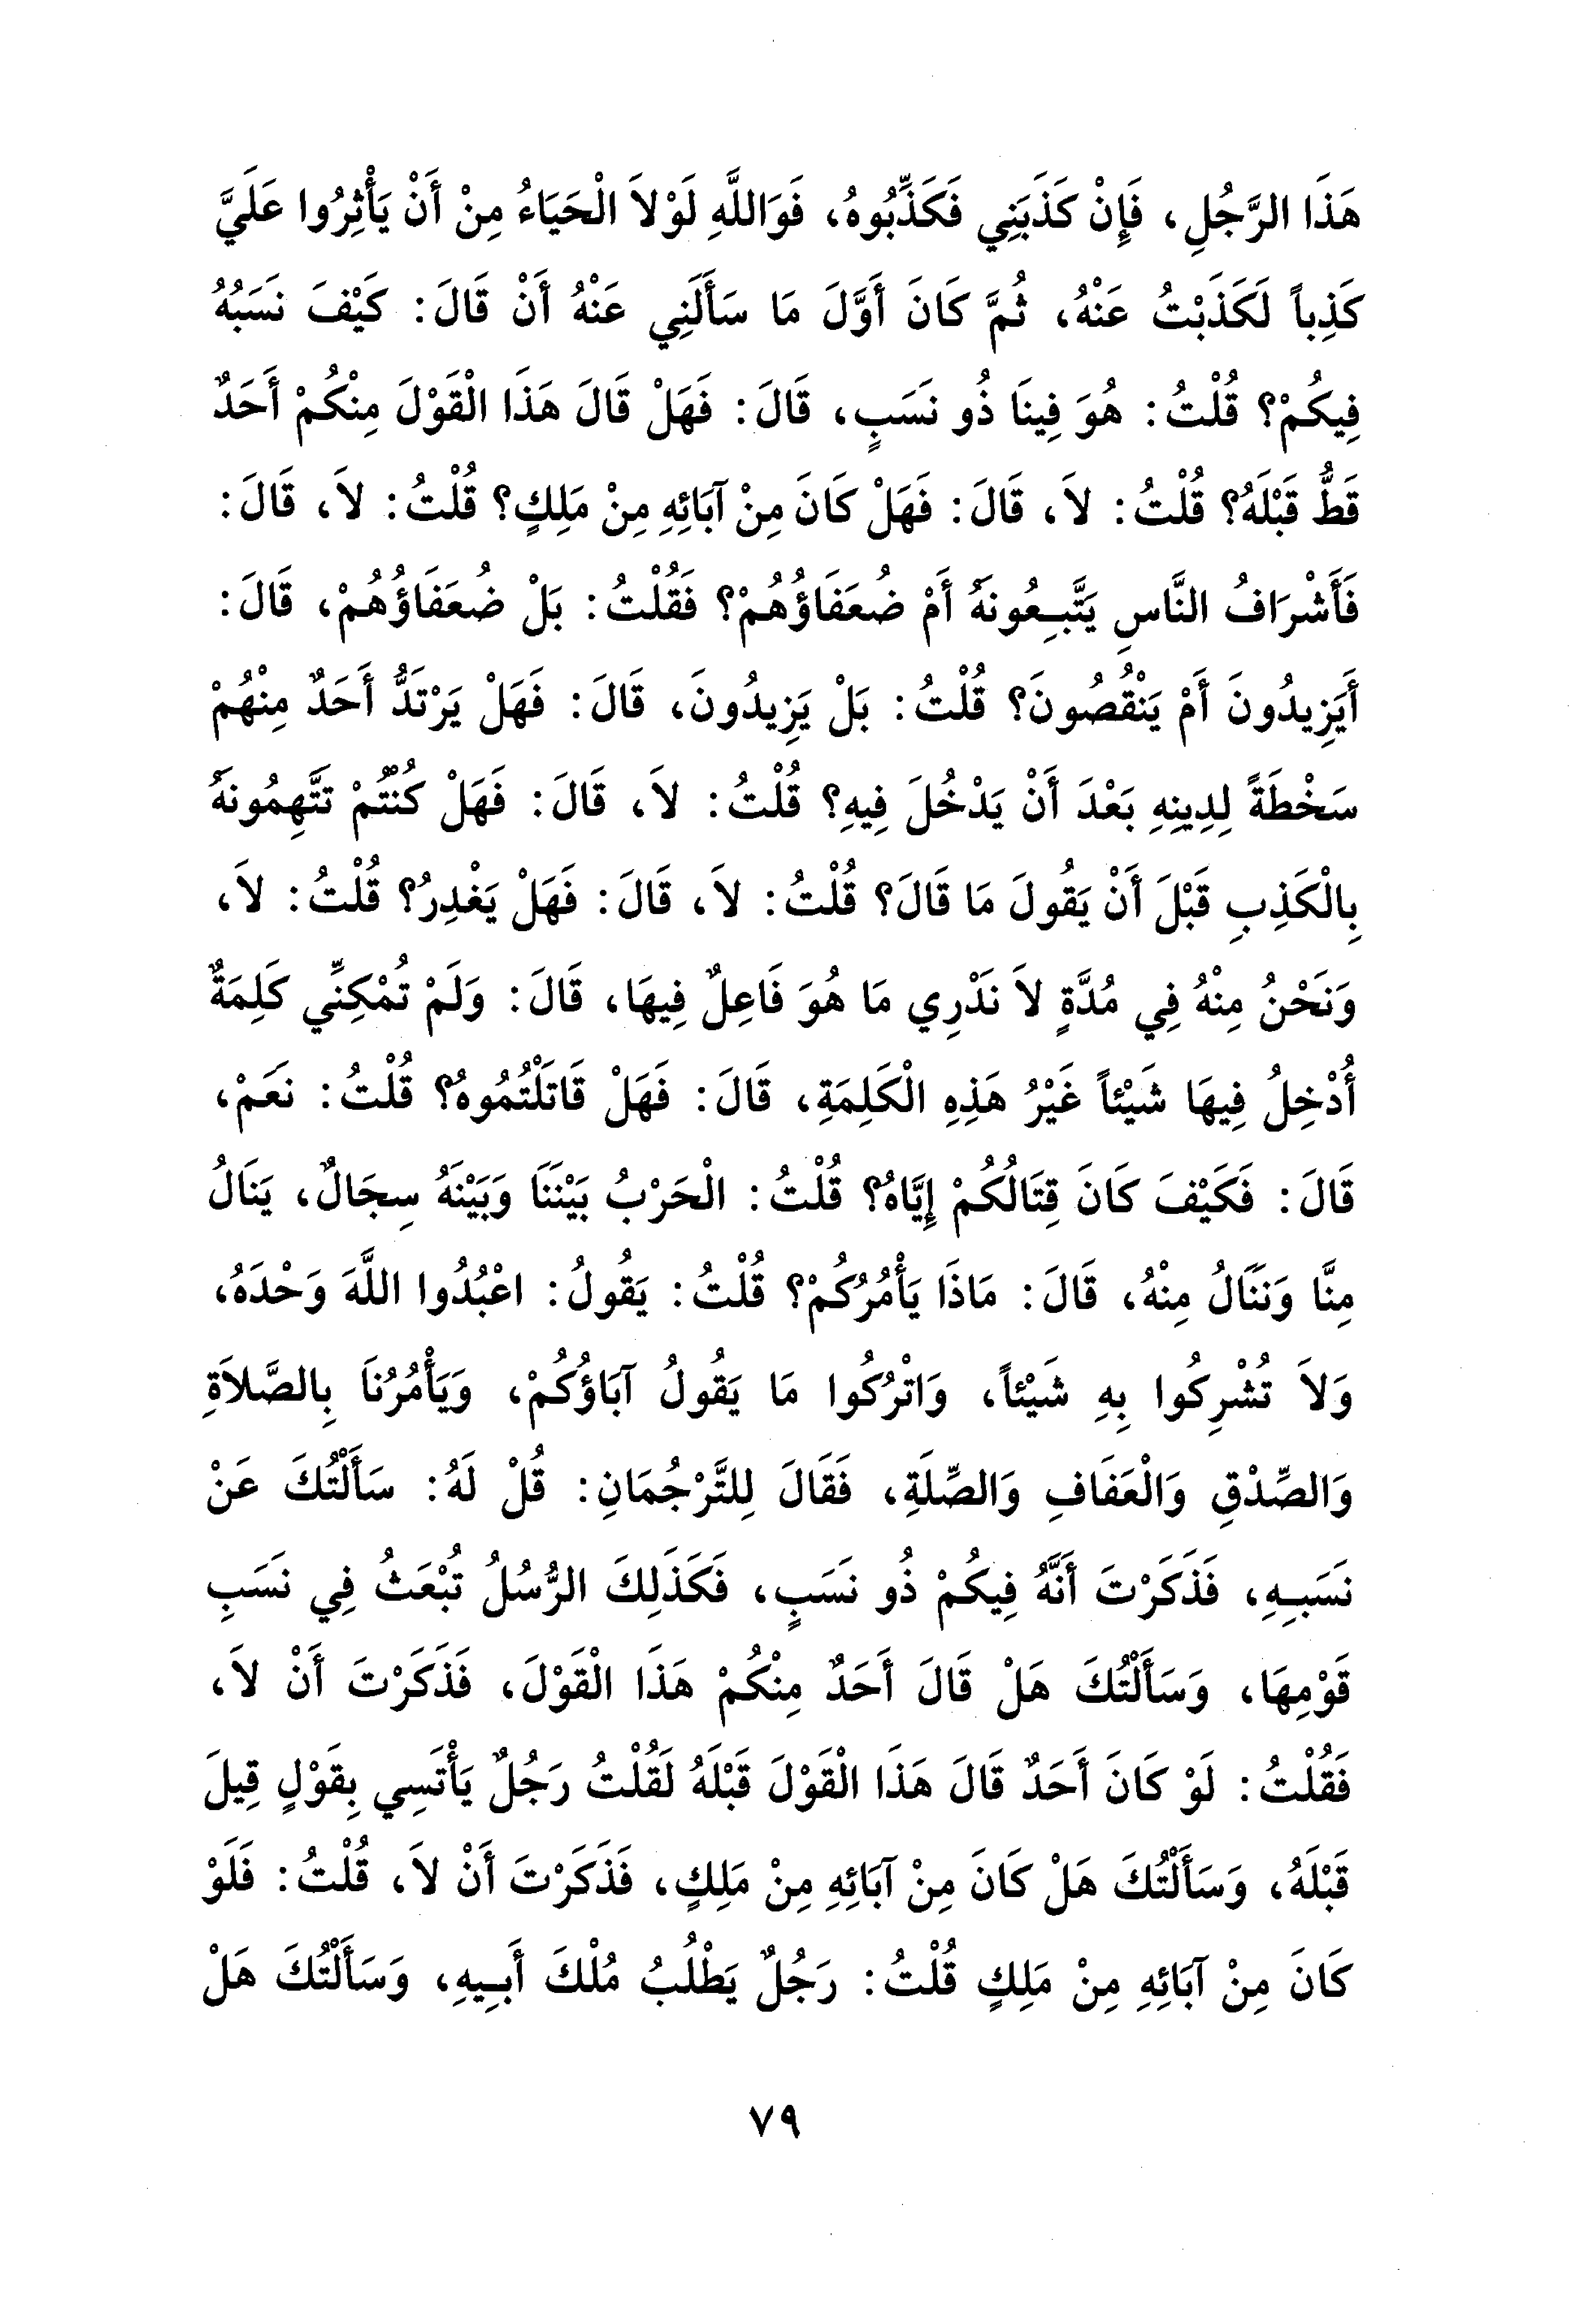 هَذَا الرَّجُلِ، فَإِنْ كَذَبَنِي فَكَذِّبُوهُ، فَوَاللَّهِ لَوْلاَ الْحَيَاءُ مِنْ أَنْ يَأْثِرُوا عَلَيَّ
كَذِباً لَكَذَبْتُ عَنْهُ، ثُمَّ كَانَ أَوَّلَ مَا سَأَلَنِي عَنْهُ أَنْ قَالَ: كَيْفَ نَسَبُهُ
فِيكُمْ؟ قُلْتُ: هُوَ فِينَا ذُو نَسَبٍ، قَالَ: فَهَلْ قَالَ هَذَا الْقَوْلَ مِنْكُمْ أَحَدٌ
قَطُّ قَبْلَهُ؟ قُلْتُ: لاَ، قَالَ: فَهَلْ كَانَ مِنْ آبَائِهِ مِنْ مَلِكٍ؟ قُلْتُ: لاَ، قَالَ:
فَأَشْرَافُ النَّاسِ يَتَّبِعُونَهُ أَمْ ضُعَفَاؤُهُمْ؟ فَقُلْتُ: بَلْ ضُعَفَاؤُهُمْ، قَالَ:
أَيَزِيدُونَ أَمْ يَنْقُصُونَ؟ قُلْتُ: بَلْ يَزِيدُونَ، قَالَ: فَهَلْ يَرْتَدُّ أَحَدٌ مِنْهُمْ
سَخْطَةً لِدِينِهِ بَعْدَ أَنْ يَدْخُلَ فِيهِ؟ قُلْتُ: لاَ، قَالَ: فَهَلْ كُنْتُمْ تَتَّهِمُونَهُ
بِالْكَذِبِ قَبْلَ أَنْ يَقُولَ مَا قَالَ؟ قُلْتُ: لاَ، قَالَ: فَهَلْ يَغْدِرُ؟ قُلْتُ: لاَ،
وَنَحْنُ مِنْهُ فِي مُدَّةٍ لاَ نَدْرِي مَا هُوَ فَاعِلٌ فِيهَا، قَالَ: وَلَمْ تُمْكِنِّي كَلِمَةٌ
أُدْخِلُ فِيهَا شَيْئاً غَيْرُ هَذِهِ الْكَلِمَةِ، قَالَ: فَهَلْ قَاتَلْتُمُوهُ؟ قُلْتُ: نَعَمْ،
قَالَ: فَكَيْفَ كَانَ قِتَالُكُمْ إِيَّاهُ؟ قُلْتُ: الْحَرْبُ بَيْنَنَا وَبَيْنَهُ سِجَالٌ، يَنَالُ
مِنَّا وَنَنَالُ مِنْهُ، قَالَ: مَاذَا يَأْمُرُكُمْ؟ قُلْتُ: يَقُولُ: اعْبُدُوا اللَّهَ وَحْدَهُ،
وَلاَ تُشْرِكُوا بِهِ شَيْئاً، وَاتْرُكُوا مَا يَقُولُ آبَاؤُكُمْ، وَيَأْمُرُنَا بِالصَّلاَةِ
وَالصِّدْقِ وَالْعَفَافِ وَالصِّلَةِ، فَقَالَ لِلتَّرْجُمَانِ: قُلْ لَهُ: سَأَلْتُكَ عَنْ
نَسَبِهِ، فَذَكَرْتَ أَنَّهُ فِيكُمْ ذُو نَسَبٍ، فَكَذَلِكَ الرُّسُلُ تُبْعَثُ فِي نَسَبِ
قَوْمِهَا، وَسَأَلْتُكَ هَلْ قَالَ أَحَدٌ مِنْكُمْ هَذَا الْقَوْلَ، فَذَكَرْتَ أَنْ لاَ،
فَقُلْتُ: لَوْ كَانَ أَحَدٌ قَالَ هَذَا الْقَوْلَ قَبْلَهُ لَقُلْتُ رَجُلٌ يَأْتَسِي بِقَوْلٍ قِيلَ
قَبْلَهُ، وَسَأَلْتُكَ هَلْ كَانَ مِنْ آبَائِهِ مِنْ مَلِكٍ، فَذَكَرْتَ أَنْ لاَ، قُلْتُ: فَلَوْ
كَانَ مِنْ آبَائِهِ مِنْ مَلِكٍ قُلْتُ: رَجُلٌ يَطْلُبُ مُلْكَ أَبِيهِ، وَسَأَلْتُكَ هَلْ
٧٩